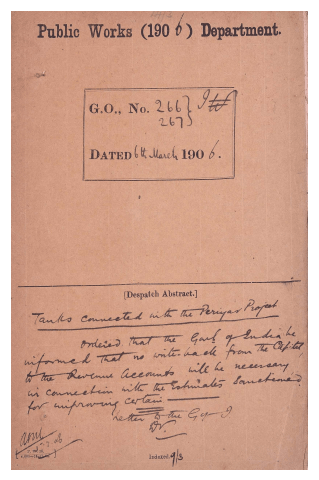 Public Works (1906) Department.
G.O., No. 266 } I
267
DATED 6th March 1906.
[Despatch Abstract.]
Tanks connected with the Periyar Project
Ordered that the Govt of India be
informed that no with from the Capital
to the Revenue Accounts will be necessary
in connection with the Estimates Sanctioned
for improving certain
letter to the G of I
Indexed 9/3